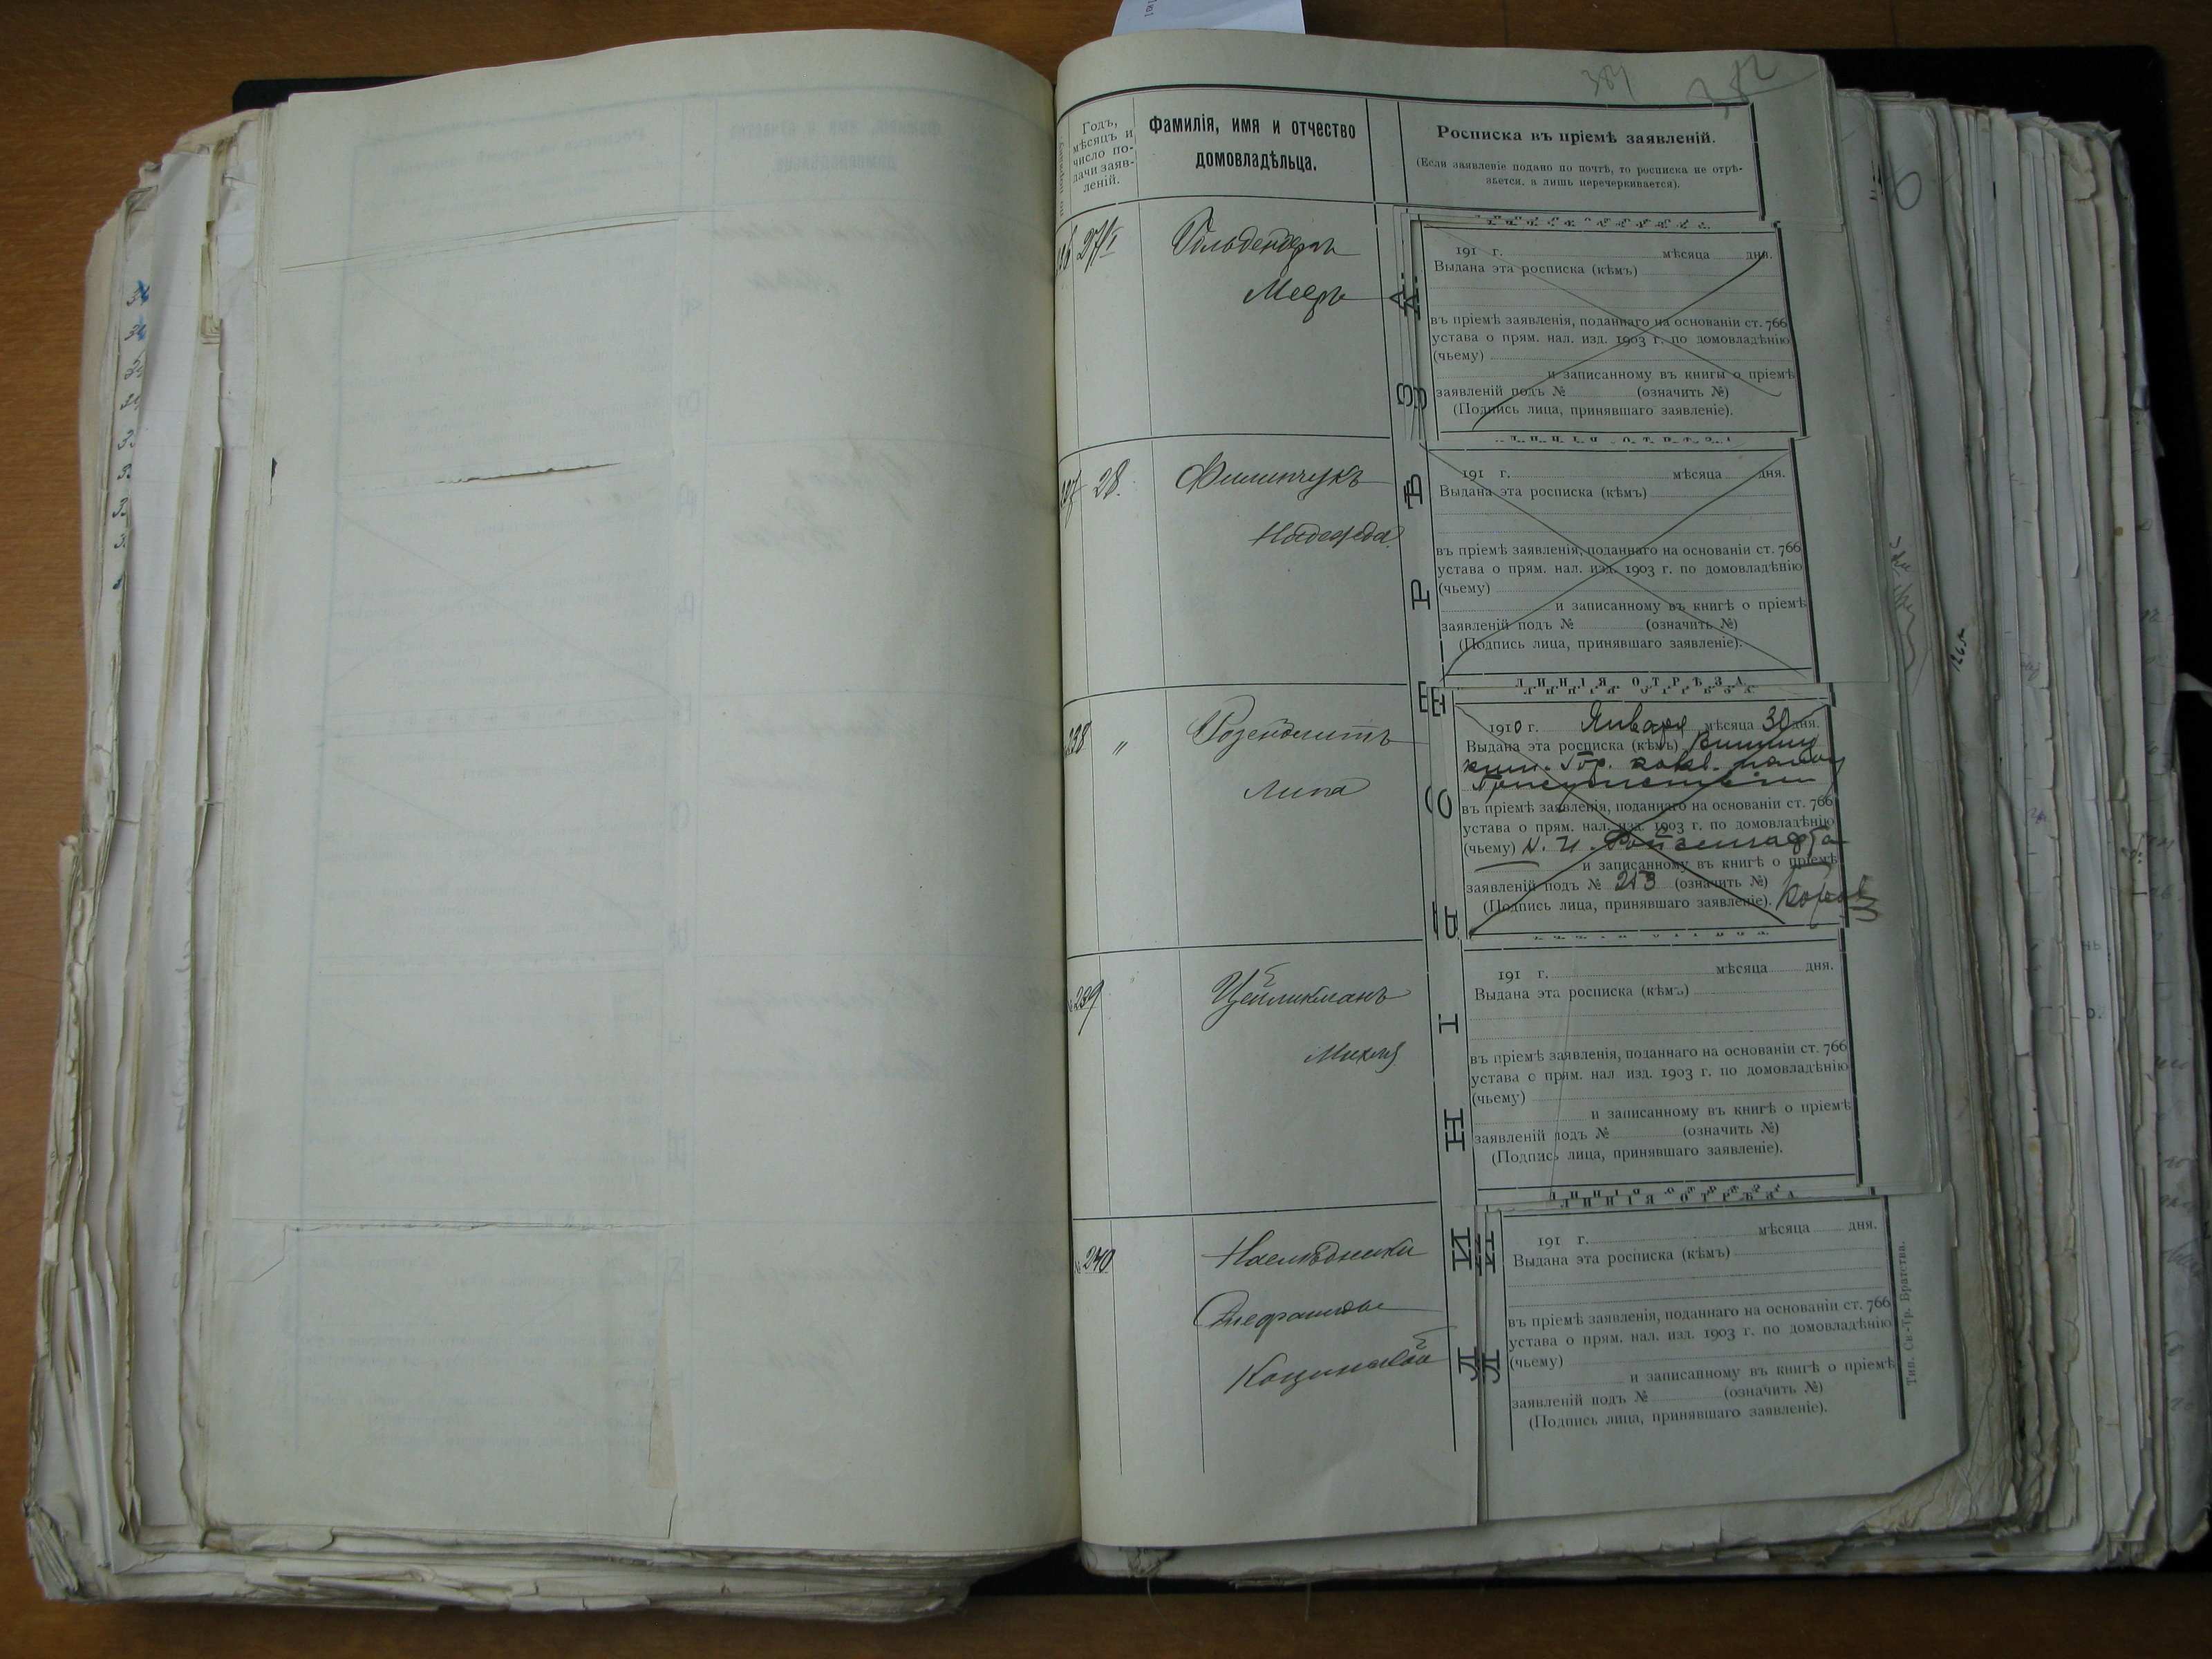 384
382
по порядку
Годъ,
мѣсяцъ и
число по-
дачи заяв-
леній.
Фамилія, имя и отчество
домовладѣльца.
Росписка въ пріемѣ заявленій.
(Если заявленіе подано по почтѣ, то росписка не отрѣ-
зается, а лишь перечеркивается).
27/I
Мееръ
191 г. мѣсяца дня.
Выдана эта росписка (кѣмъ)
въ пріемѣ заявленія, поданнаго на основаніи ст. 766
устава о прям. нал. изд. 1903 г. по домовладѣнію
(чьему)
и записанному въ книгы о пріемѣ
заявленій подъ № (означить №)
(Подпись лица, принявшаго заявленіе).
28.
Филипчукъ
Надежда
191 г. мѣсяца дня.
Выдана эта росписка (кѣмъ)
въ пріемѣ заявленія, поданнаго на основаніи ст. 766
устава о прям. нал. изд. 1903 г. по домовладѣнію
(чьему)
и записанному въ книгѣ о пріемѣ
заявленій подъ № (означить №)
(Подпись лица, принявшаго заявленіе).
ЛИНІЯ ОТРѢЗА
238 "
Розенблитъ
Липа
1910 г. Января мѣсяца 30 дня.
Выдана эта росписка (кѣмъ)
въ пріемѣ заявленія, поданнаго на основаніи ст. 766
устава о прям. нал. изд. 1903 г. по домовладѣнію
(чьему)
и записанному въ книгѣ о пріемѣ
заявленій подъ № 253 (означить №)
(Подпись лица, принявшаго заявленіе).
№ 239
Цейликманъ
Михля
191 г. мѣсяца дня.
Выдана эта росписка (кѣмъ)
въ пріемѣ заявленія, поданнаго на основаніи ст. 766
устава о прям. нал. изд. 1903 г. по домовладѣнію
(чьему)
и записанному въ книгѣ о пріемѣ
заявленій подъ № (означить №)
(Подпись лица, принявшаго заявленіе).
ЛИНІЯ ОТРѢЗА
№ 240
Наслѣдники
191 г. мѣсяца дня.
Выдана эта росписка (кѣмъ)
въ пріемѣ заявленія, поданнаго на основаніи ст. 766
устава о прям. нал. изд. 1903 г. по домовладѣнію
(чьему)
и записанному въ книгѣ о пріемѣ
заявленій подъ № (означить №)
(Подпись лица, принявшаго заявленіе).
Тип. Св.-Тр. Братства.